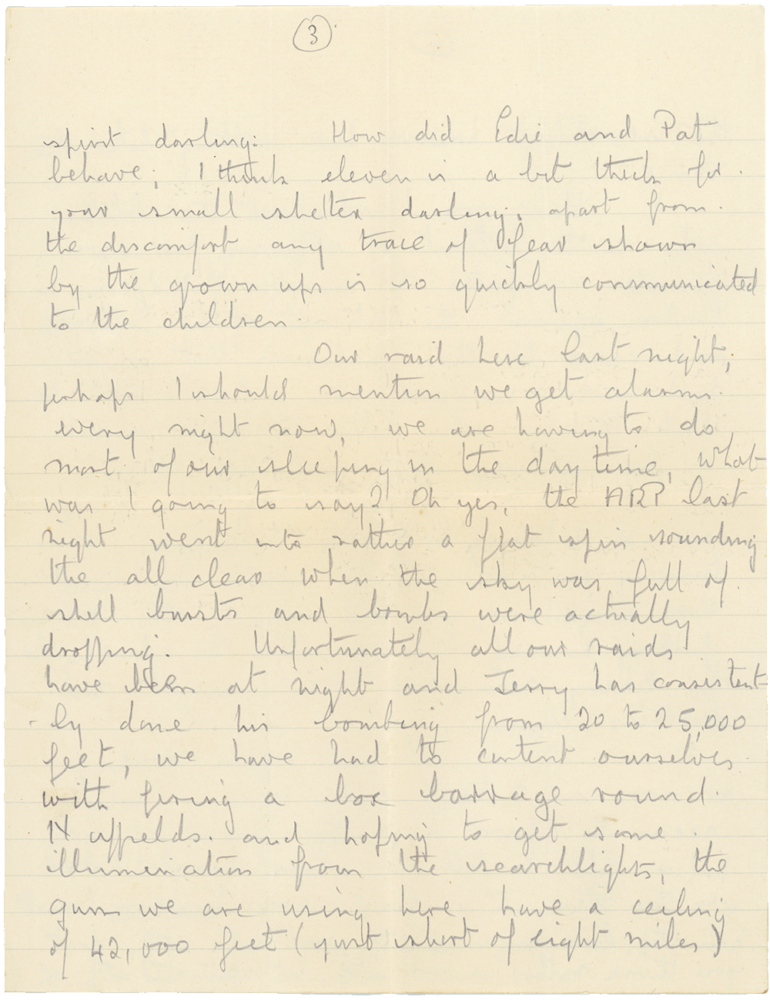 3
spirit darling: How did Edie and Pat
behave; I think eleven is a bit thick for
your small shelter darling; apart from
the discomfort any trace of fear shown
by the grown ups is so quickly communicated
to the children.
Our raid here last night;
perhaps I should mention we get alarms
every night now, we are having to do
most of our sleeping in the day time, what
was I going to say? Oh yes, the ARP last
night went into rather a flat spin sounding
the all clear when the sky was full of
shell bursts and bombs were actually
dropping. Unfortunately all our raids
have been at night and Jerry has consistent
-ly done his bombing from 20 to 25,000
feet, we have had to content ourselves
with firing a box barrage round
and hoping to get some
illumination from the searchlights, the
guns we are using here have a ceiling
of 42,000 feet (just short of eight miles)